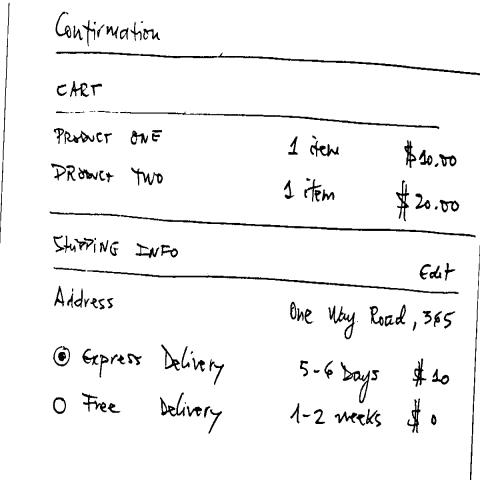 Confirmation
CART
PRODUCT ONE 1 item $10.00
PRODUCT TWO 1 item $20.00
SHIPPING INFO
Edit
Address One Way Road, 365
Express Delivery 5-6 Days $10
Free Delivery 1-2 weeks $0